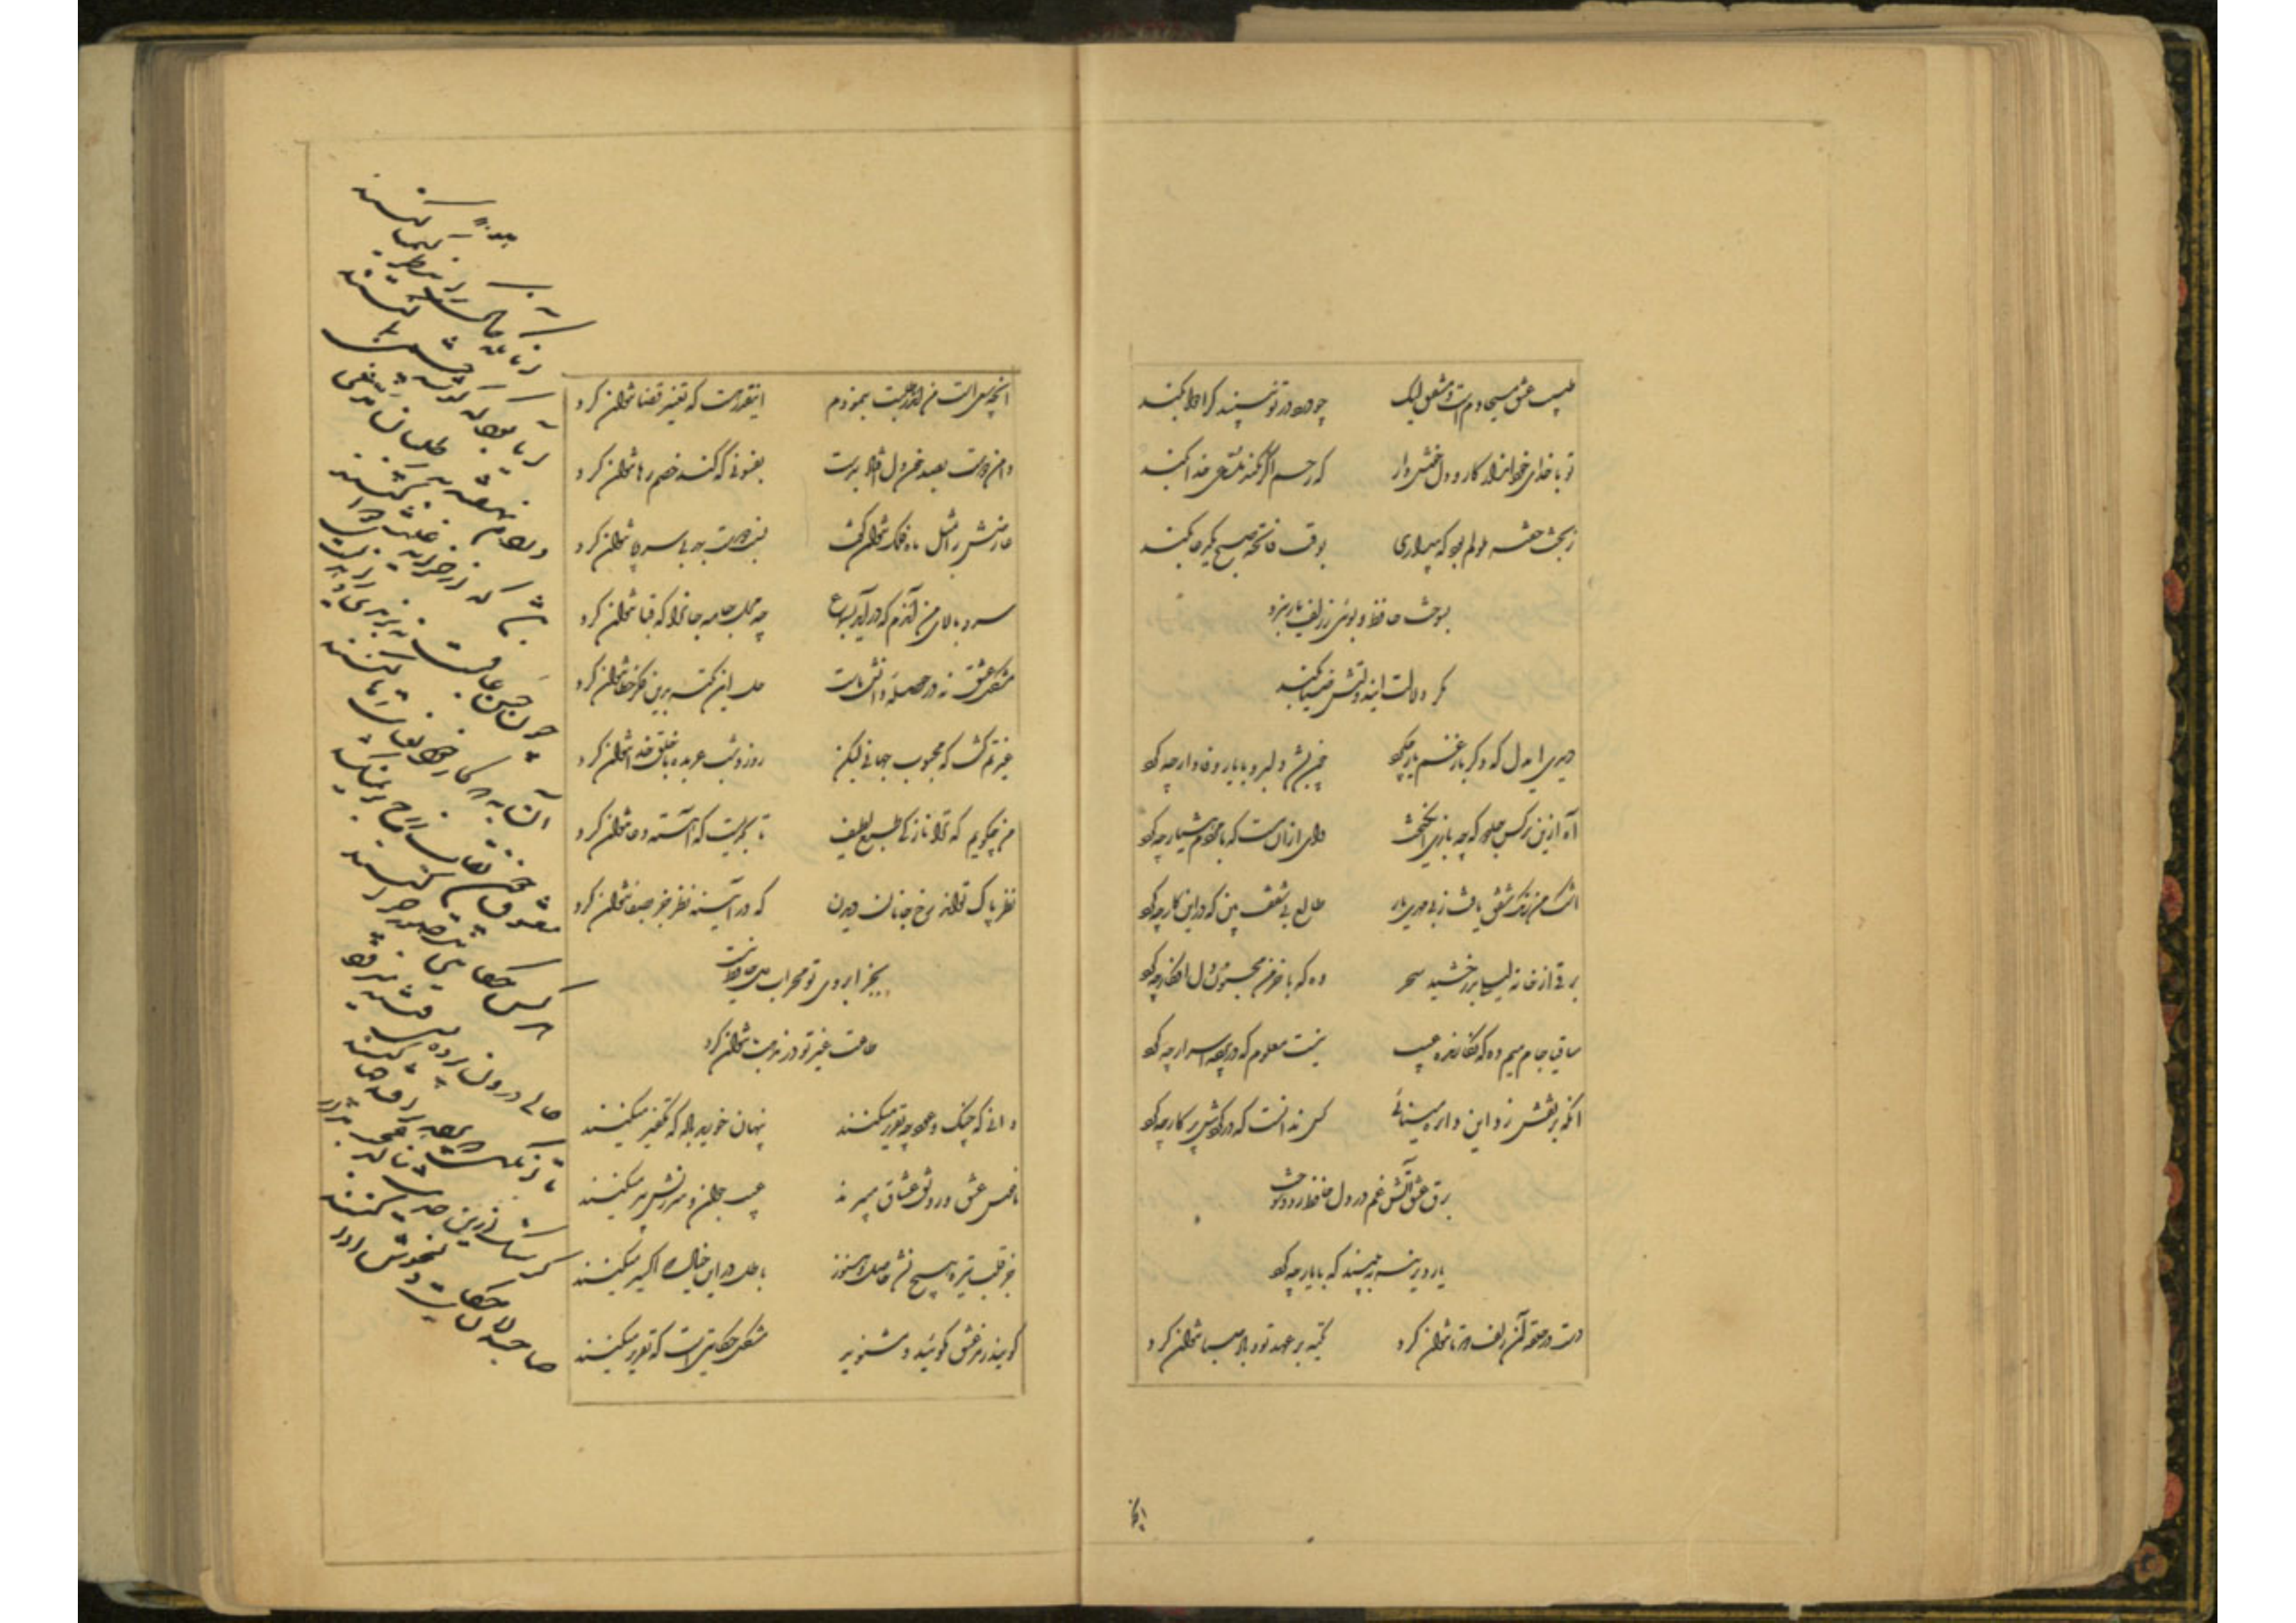 طبیب عشق مسیحا دم است و مشفق لیک چو درد در تو نبیند کرا دوا بکند
تو با خدای خود انداز کار و دل خوش دار که رحم اگر نکند مدعی خدا بکند
ز بخت خفته ملولم بود که بیداری بوقت فاتحه صبح یکدعا بکند
بسوخت حافظ و بوئی ز زلف یار نبرد
مکر دلالت این دولتش صبا بکند
دیدی ایدل که دکر بار غم یار چه کرد چون بشد دلبر و با یار وفادار چه کرد
آه ازین نرکس جادو که چه بازی انکیخت وای ازان مست که با مردم هشیار چه کرد
اشک من رنک شفق یافت ز بی مهری یار طالع بی شفقت بین که در این کار چه کرد
برقی از خانه لیلی بدرخشید سحر وه که با خرمن مجنون دل افکار چه کرد
ساقی جام میم ده که نکارنده غیب نیست معلوم که در پرده اسرار چه کرد
آنکه پر نقش زد این دایره مینائی کس ندانست که در کردش پرکار چه کرد
برق عشق آتش غم در دل حافظ زد و سوخت
یار دیرینه ببینید که با یار چه کرد
دست در حلقه آن زلف دوتا نتوان کرد تکیه بر عهد تو و باد صبا نتوان کرد
آنچه سعی است من اندر طلبت بنمودم اینقدر هست که تغییر قضا نتوان کرد
دامن دوست بصد خون دل افتاد بدست بفسونی که کند خصم رها نتوان کرد
عارضش را بمثل ماه فلک نتوان کفت نسبت دوست بهر بی سر و پا نتوان کرد
سرو بالای من آندم که درآید بسماع چه محل جامه جانرا که قبا نتوان کرد
مشکل عشق نه در حوصله دانش ماست حل این نکته بدین فکر خطا نتوان کرد
غیرتم کشت که محبوب جهانی لیکن روز و شب عربده با خلق خدا نتوان کرد
من چکویم که ترا نازکی طبع لطیف تا بحدیست که آهسته دعا نتوان کرد
نظر پاک تواند رخ جانان دیدن که در آئینه نظر جز بصفا نتوان کرد
بجز ابروی تو محراب دل حافظ نیست
طاعت غیر تو در مذهب ما نتوان کرد
دانی که چنک و عود چه تقریر میکنند پنهان خورید باده که تکفیر میکنند
ناموس عشق و رونق عشاق میبرند عیب جوان و سرزنش پیر میکنند
جز قلب تیره هیچ نشد حاصل و هنوز باطل در این خیال که اکسیر میکنند
کویند رمز عشق مکوئید و مشنوید مشکل حکایتی است که تقریر میکنند
آنانکه خاک را بنظر کیمیا کنند
آیا بود که کوشه چشمی بما کنند
دردم نهفته به ز طبیبان مدعی
باشد که از خزانه غیبش دوا کنند
چون حسن عاقبت نه برندی و زاهدیست
آن به که کار خود بعنایت رها کنند
معشوق چون نقاب ز رخ برنمیکشد
هر کس حکایتی بتصور چرا کنند
حالی درون پرده بسی فتنه میرود
تا آنزمان که پرده برافتد چها کنند
کر سنک ازین حدیث بنالد عجب مدار
صاحبدلان حکایت دل خوش ادا کنند